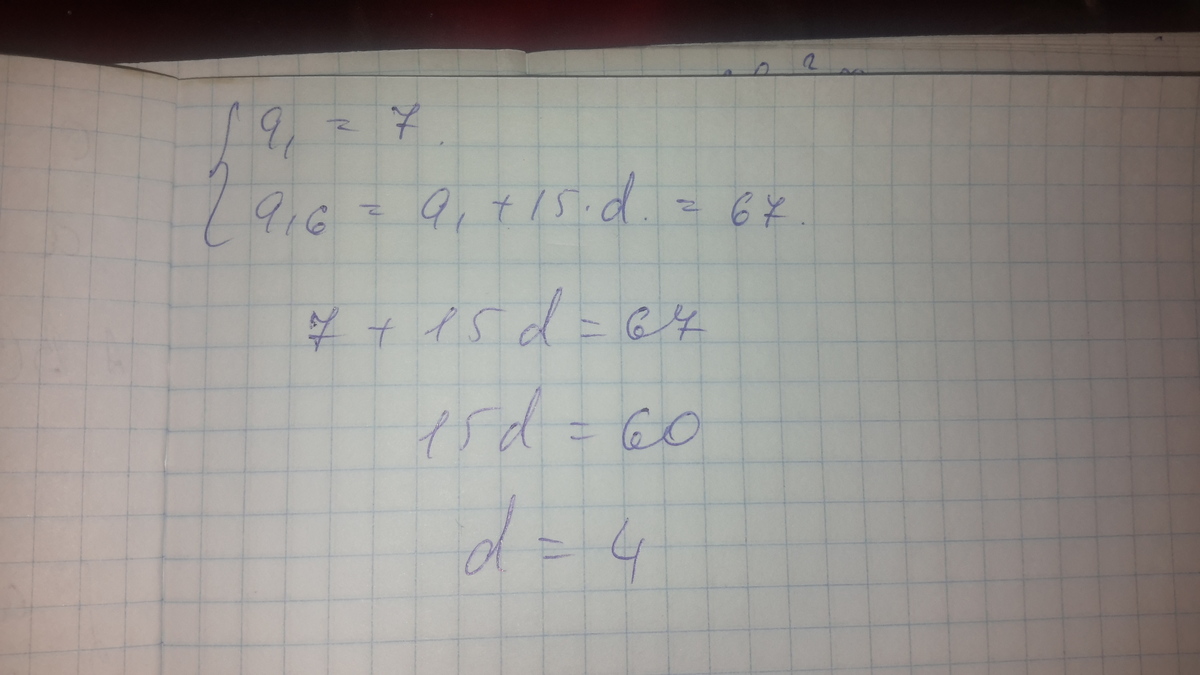 { a₁ = 7.
a₁₆ = a₁ + 15·d. = 67.
7 + 15d = 67
15d = 60
d = 4